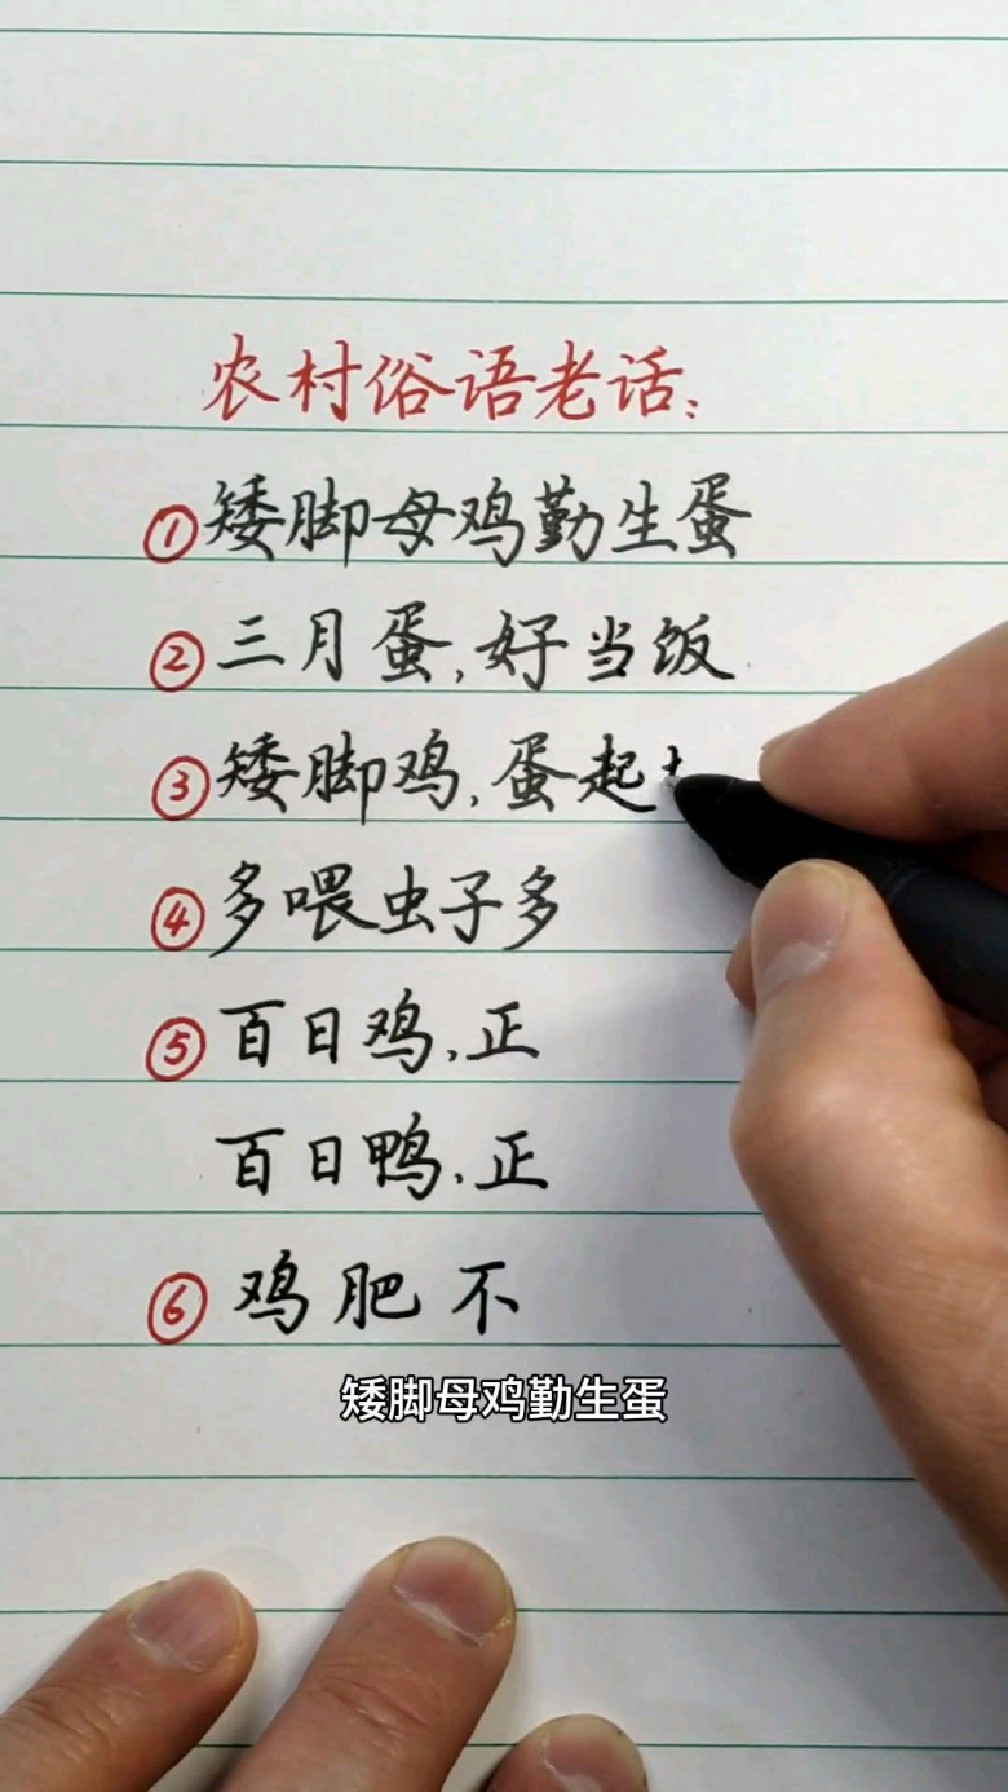 农村俗语老话：
①矮脚母鸡勤生蛋
②三月蛋，好当饭
③矮脚鸡，蛋起
④多喂虫子多
⑤百日鸡，正
百日鸭，正
⑥鸡肥不
矮脚母鸡勤生蛋